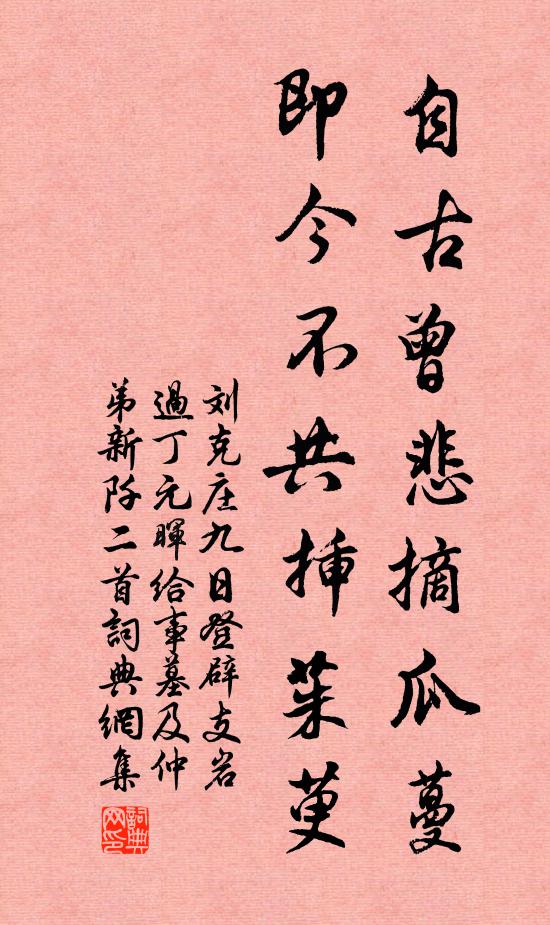 自古曾悲摘瓜蔓
即今不共插茱萸
刘克庄九日登辟支岩
過丁元暉给事墓及仲
弟新阡二首詞典網集
詞典网印